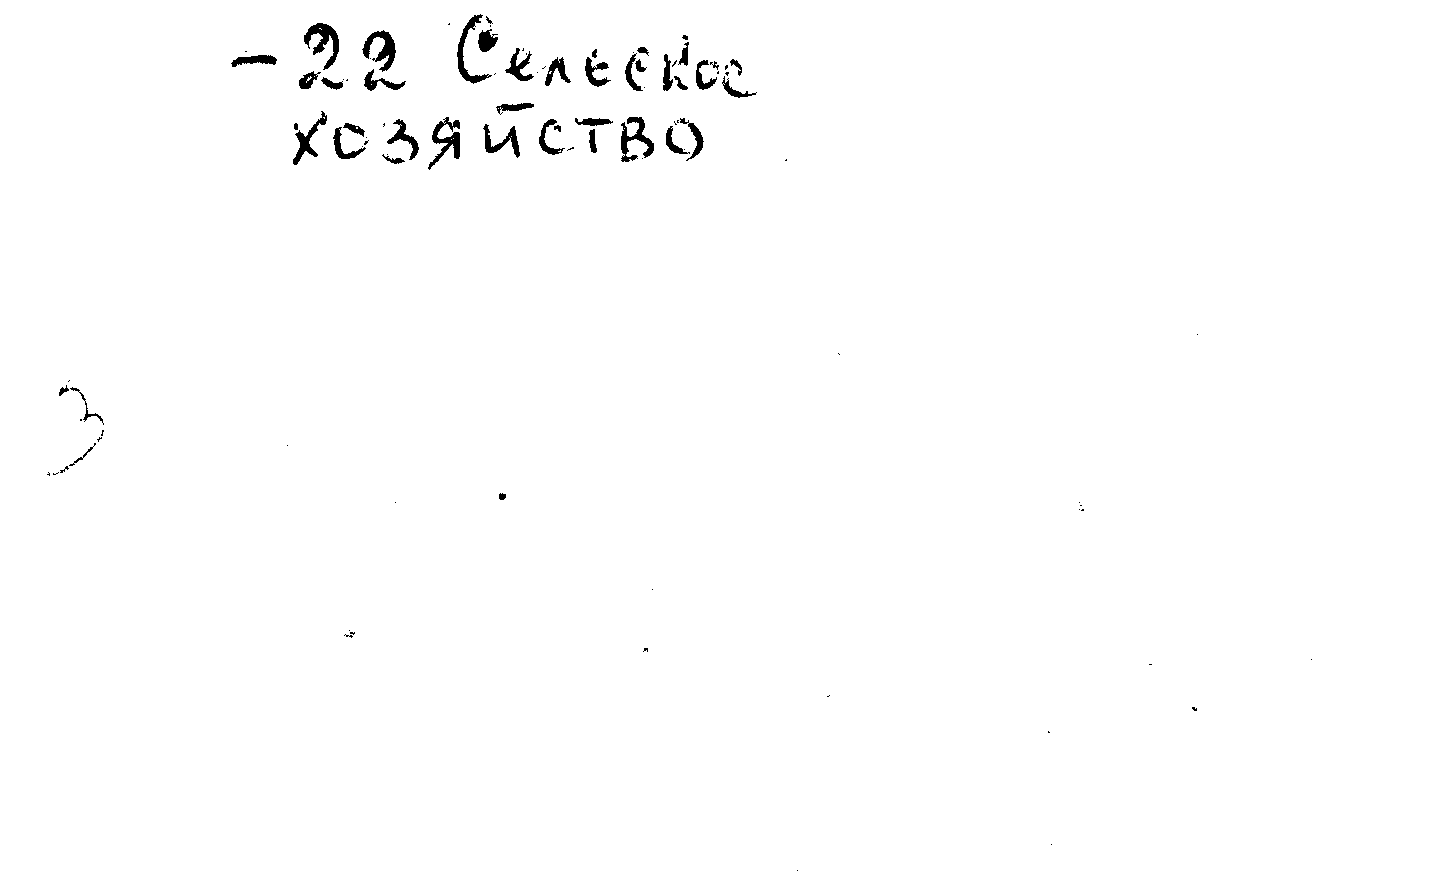 -22 Сельское
хозяйство
3